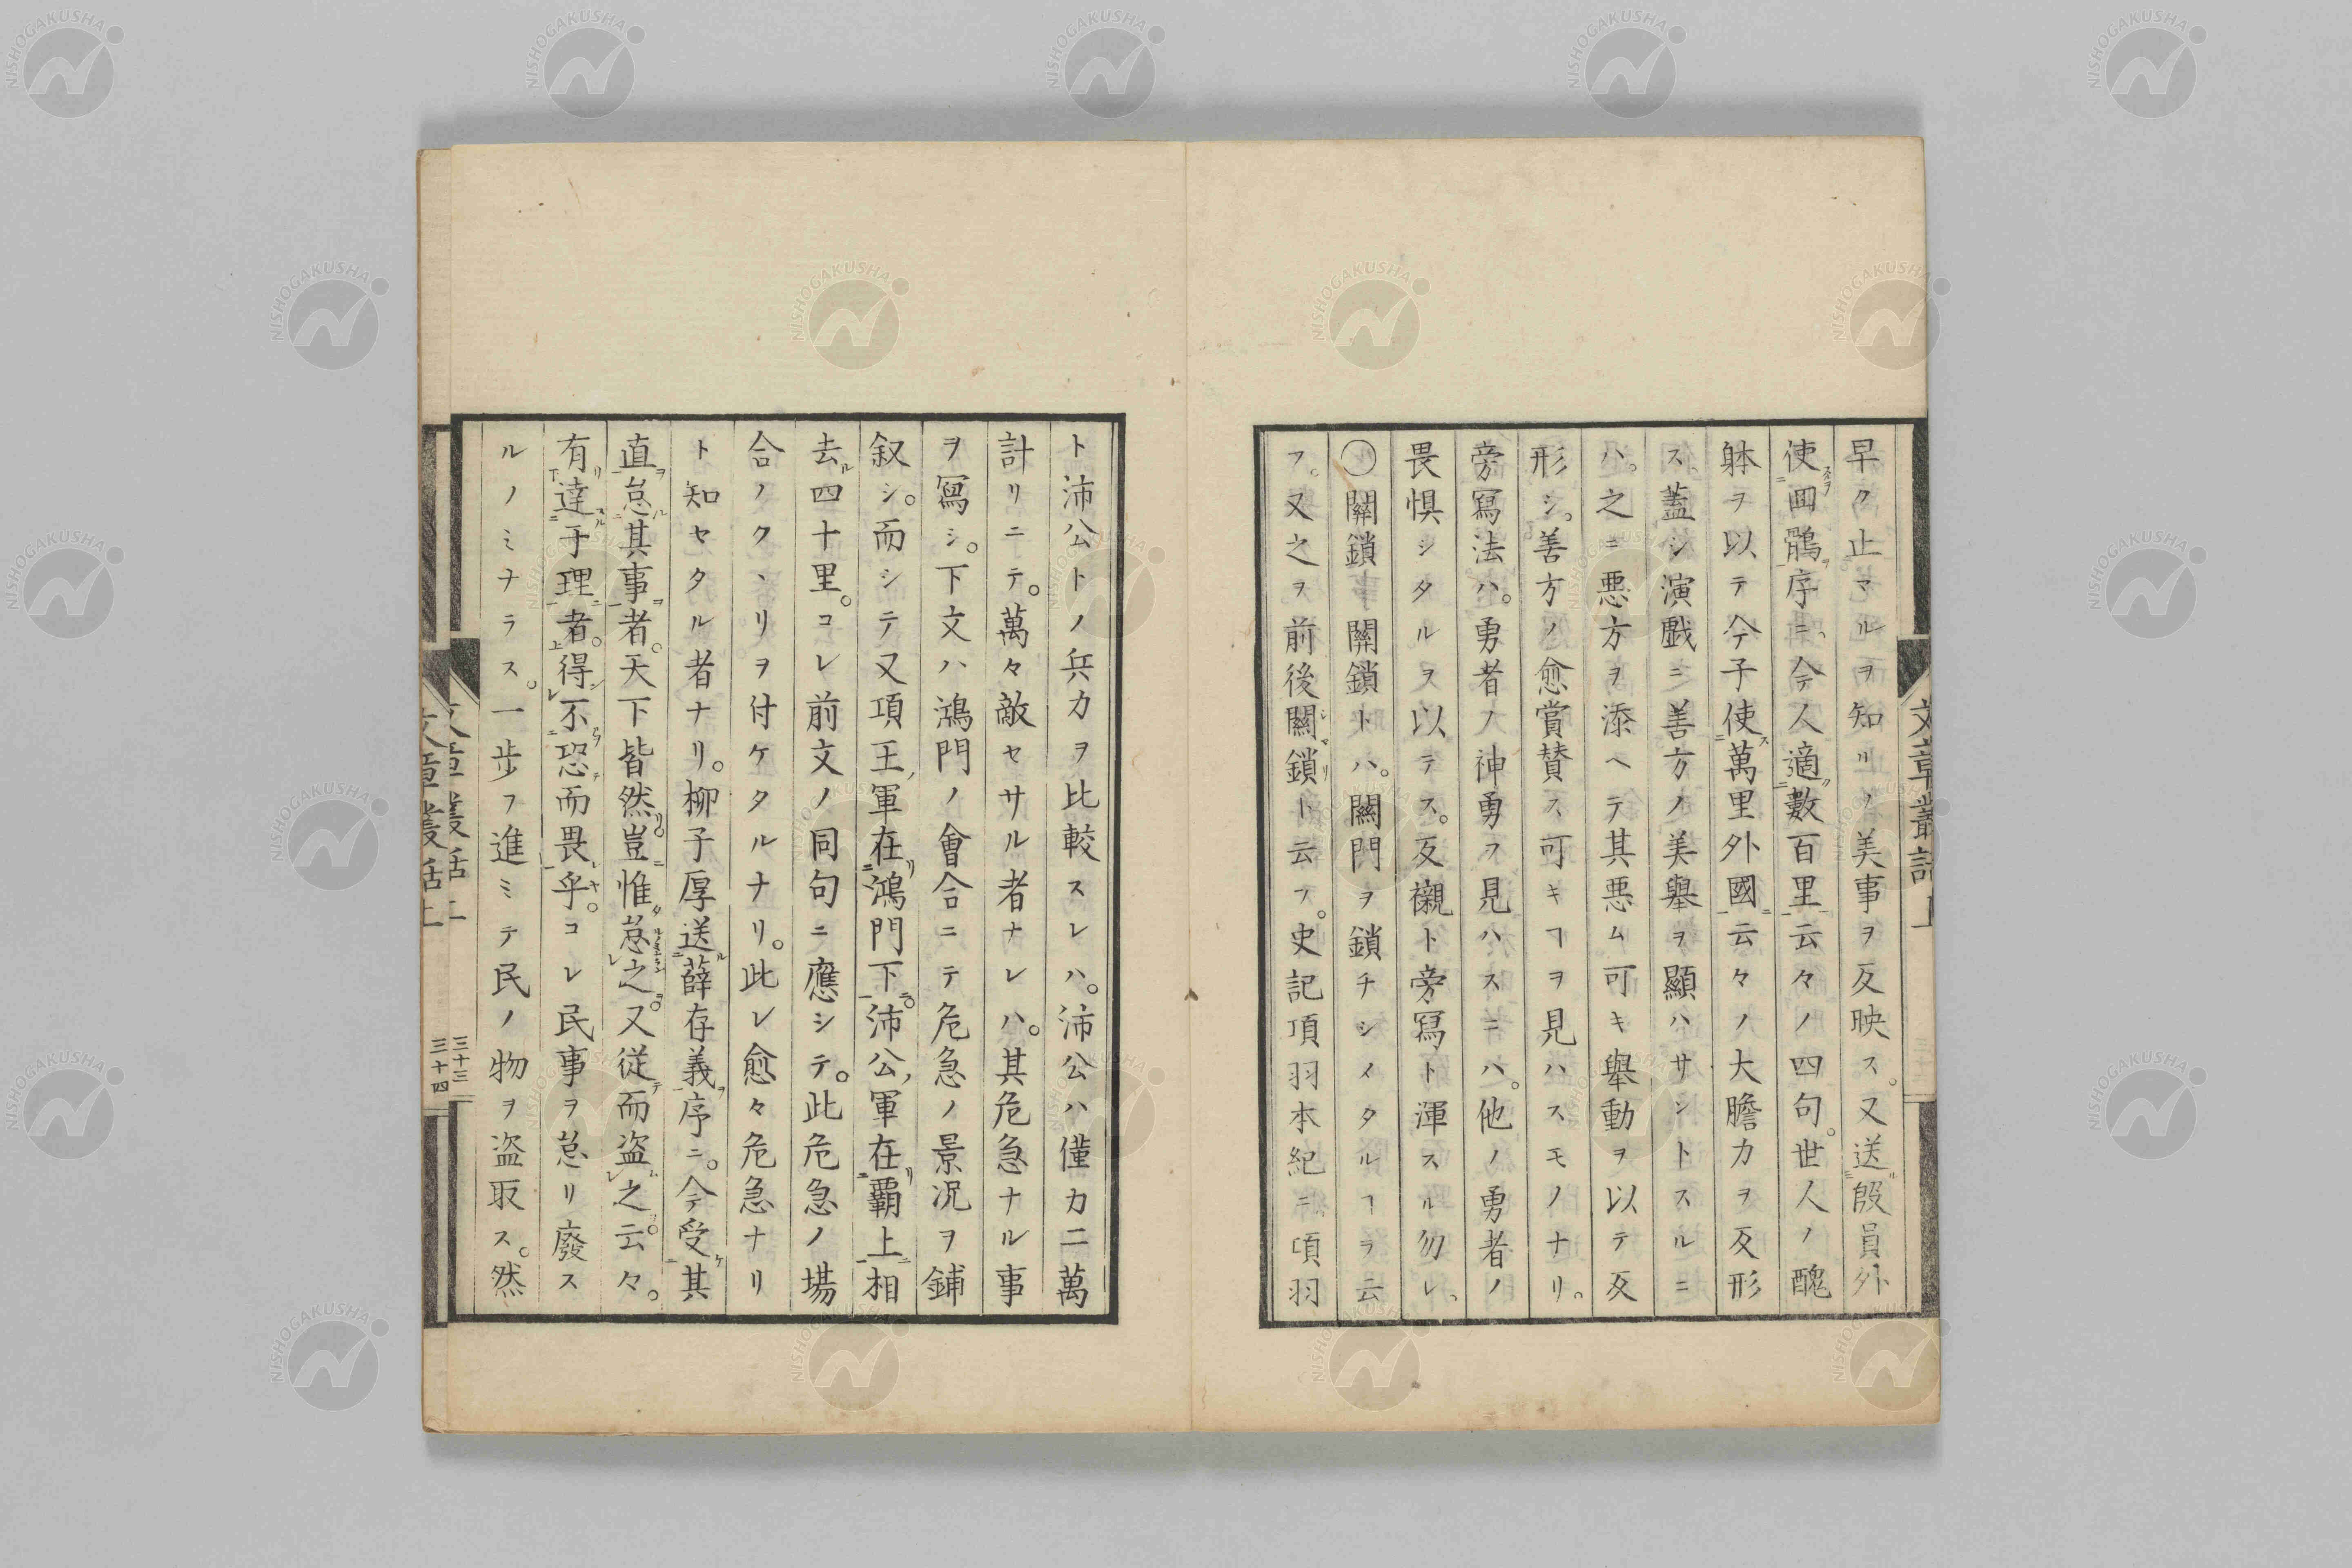 早ク止マルヲ知ルノ美事ヲ反映ス。又送殷員外
使囬鶻序ニ、今人適數百里云々ノ四句。世人ノ醜
躰ヲ以テ今子使萬里外國云々ノ大膽力ヲ反形
ス。蓋シ演戲ニ善方ノ美舉ヲ顯ハサントスルニ
ハ。之ニ悪方ヲ添ヘテ其悪ム可キ舉動ヲ以テ反
形シ。善方ノ愈賞賛ス可キヿヲ見ハスモノナリ。
旁寫法ハ。勇者ノ神勇ヲ見ハスニハ。他ノ勇者ノ
畏惧シタルヲ以テス。反襯ト旁寫ト渾スル勿レ。
〇關鎖 關鎖トハ。關門ヲ鎖チシメタルヿヲ云
フ。又之ヲ前後關鎖ト云フ。史記項羽本紀ニ、項羽
ト沛公トノ兵力ヲ比較スレハ。沛公ハ僅カ二萬
計リニテ。萬々敵セサル者ナレハ。其危急ナル事
ヲ寫シ。下文ハ鴻門ノ會合ニテ危急ノ景况ヲ鋪
叙シ。而シテ又項王、軍在鴻門下。沛公、軍在覇上相
去四十里。コレ前文ノ同句ニ應シテ。此危急ノ場
合ノクヽリヲ付ケタルナリ。此レ愈々危急ナリ
ト知セタル者ナリ。柳子厚送薛存義序ニ。今受其
直怠其事者。天下皆然。豈惟怠之。又従而盗之。云々。
有達于理者。得不恐而畏乎。コレ民事ヲ怠リ廢ス
ルノミナラス。一歩ヲ進ミテ民ノ物ヲ盗取ス。然
文章叢話上
三十三
文章叢話上
三十四
NISHOGAKUSHA